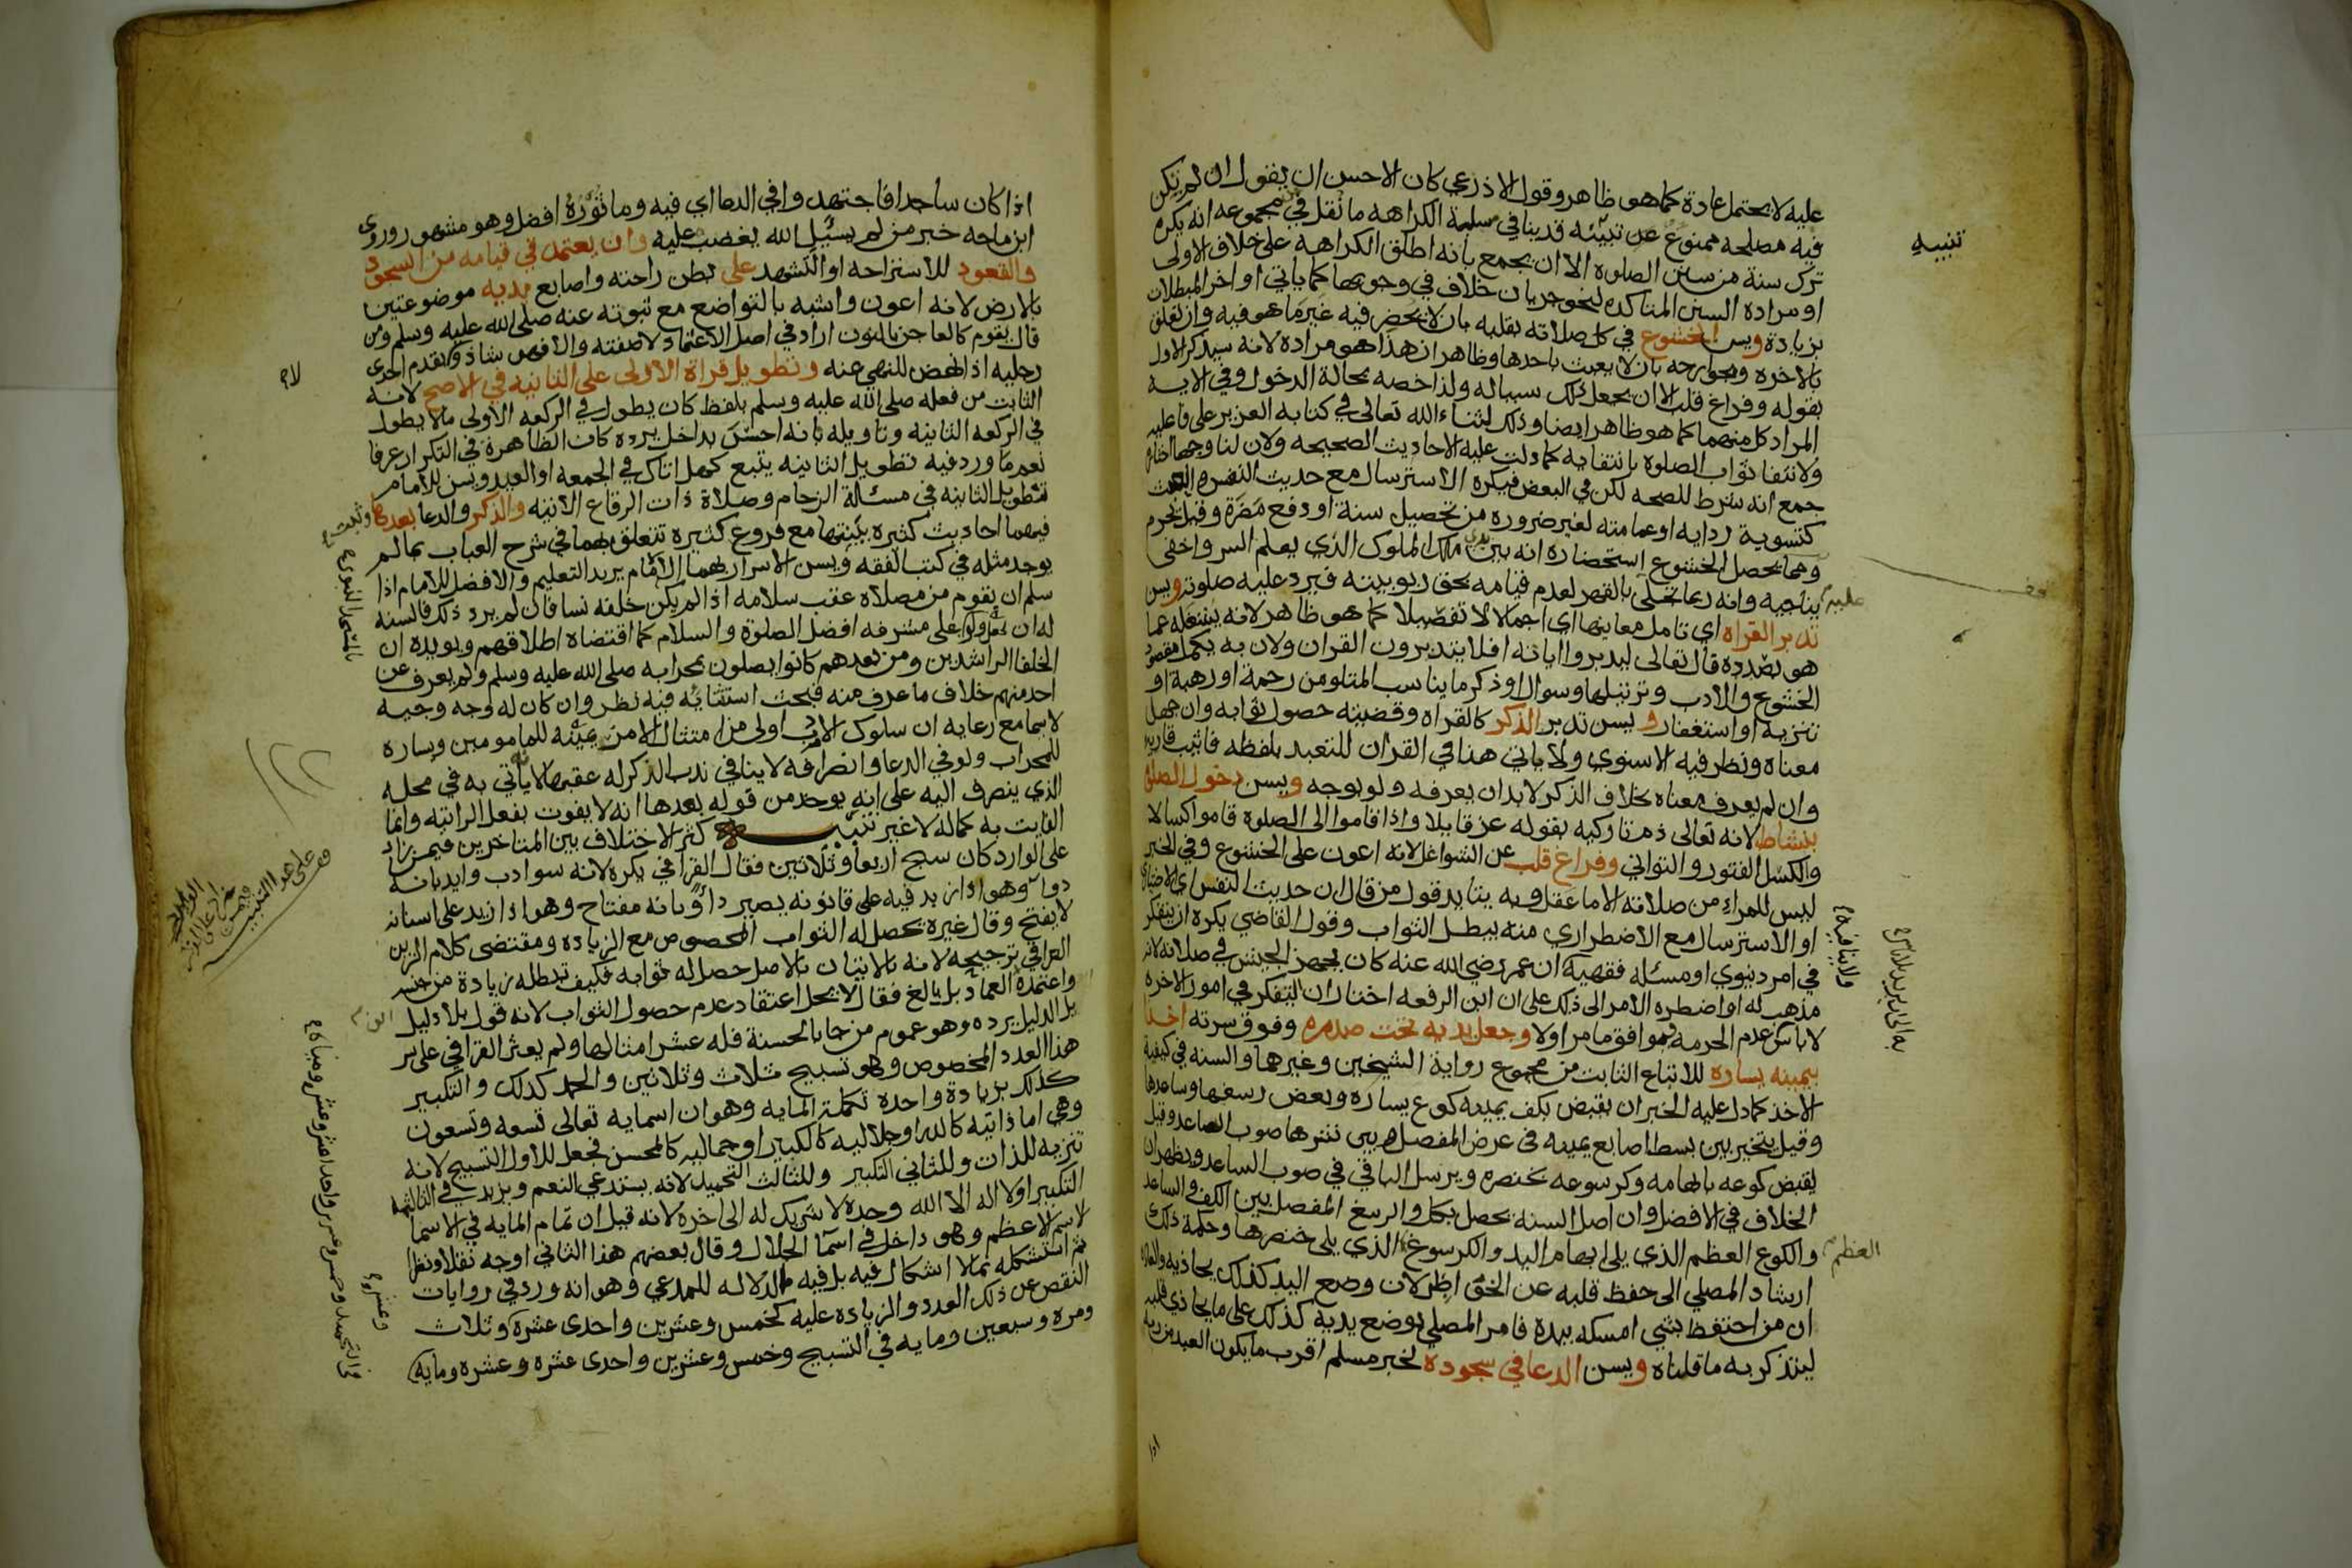 عليه لا يحتمل عادة كما هو ظاهر وقول الاذرعي كان الاحسن ان يقول ان لم يكن
فيه مصلحه ممنوع عن تبيّنه قدينا في مسلمة الكراهه ما نقل في مجموعه انه يكره
ترك سنة من سنن الصلوه الا ان يجمع بانه اطلق الكراهه على خلاف الاولى
او مراده السنن المتاكده لنحو جريان خلاف في وجوبها كما ياتي اواخر المبطلات
بزيادة ويسن الخشوع في كل صلاته بقلبه بان لا يحضر فيه غير ما هو فيه وان تعلق
بالاخره وبجوارحه بان لا يعبث باحدها وظاهر ان هذا هو مراده لانه سيذكر الاول
بقوله وفراغ قلب الا ان يجعل ذلك سببا له ولذا خصه بحالة الدخول وفي الايه
المراد كل منهما كما هو ظاهر ايضا وذلك لثناء الله تعالى في كتابه العزيز على فاعليه
ولانتفا ثواب الصلوة بانتفايه كما دلت عليه الاحاديث الصحيحه ولان لنا وجها اختاره
جمع انه شرط للصحه لكن في البعض فيكره الاسترسال مع حديث النفس والعبث
كتسوية ردايه او عمامته لغير ضروره من تحصيل سنة او دفع مضرة وقيل يحرم
ومما يحصل الخشوع استحضاره انه بين يدي ملك الملوك الذي يعلم السر واخفى
يناجيه وانه ربما تجلى عليه بالقهر لعدم قيامه بحق ربوبيته فيرد عليه صلوته ويسن
تدبر القراه اي تامل معانيها اي اجمالا لا تفصيلا كما هو ظاهر لانه يشغله عما
هو بصدده قال تعالى ليدبروا اياته افلا يتدبرون القران ولان به يكمل مقصود
الخشوع والادب وترتيلها وسوال او ذكر ما يناسب المتلو من رحمة او رهبة او
تنزيه او استغفار ويسن تدبر الذكر كالقراه وقضيته حصول ثوابه وان جهل
معناه ونظر فيه الاسنوي ولا ياتي هذا في القران للتعبد بلفظه فاثيب قاريه
وان لم يعرف معناه بخلاف الذكر لا بد ان يعرفه ولو بوجه ويسن دخول الصلوة
بنشاط لانه تعالى ذم تاركيه بقوله عز قايلا واذا قاموا الى الصلوة قاموا كسالا
والكسل الفتور والتواني وفراغ قلب عن الشواغل لانه اعون على الخشوع وفي الخبر
ليس للمراء من صلاته الا ما عقل وبه يتايد قول من قال ان حديث النفس اي الاختياري
او الاسترسال مع الاضطراري منه يبطل الثواب وقول القاضي يكره ان يتفكر
في امر دنيوي او مسئله فقهيه ان عمر رضي الله عنه كان يجهز الجيش في صلاته لانه
مذهب له او اضطره الامر الى ذلك على ان ابن الرفعه اختار ان التفكر في امور الاخره
لا باس به وجعل يديه تحت صدره وفوق سرته اخذا
بيمينه يساره للاتباع الثابت من مجموع رواية الشيخين وغيرهما والسنه في كيفية
الاخذ كما دل عليه الخبر ان يقبض بكف يمينه كوع يساره وبعض رسغها وساعدها
وقيل يتخير بين بسط اصابع يمينه في عرض المفصل وبين نشرها صوب الساعد وقيل
يقبض كوعه بابهامه وكرسوعه بخنصره ويرسل الباقي في صوب الساعد ويظهر ان
الخلاف في الافضل وان اصل السنه يحصل بكل والرسغ المفصل بين الكف والساعد
والكوع العظم الذي يلي ابهام اليد والكرسوغ الذي يلي خنصرها وحكمة ذلك
ارشاد المصلي الى حفظ قلبه عن الخواطر لان وضع اليد كذلك يحاذيه والعادة
ان من احتفظ بشي امسكه بيده فامر المصلي بوضع يديه كذلك على ما يحاذي قلبه
ليتذكر به ما قلناه ويسن الدعا في سجوده لخبر مسلم اقرب ما يكون العبد من ربه
تنبيه
عليه
العظم
اذا كان ساجدا فاجتهدوا في الدعا اي فيه وماثوره افضل وهو مشهور وروى
ابن ماجه خبر من لم يسئل الله يغضب عليه وان يعتمد في قيامه من السجود
والقعود للاستراحه او التشهد على بطن راحته واصابع يديه موضوعتين
بالارض لانه اعون واشبه بالتواضع مع ثبوته عنه صلى الله عليه وسلم ومن
قال يقوم كالعاجز بالنون اراد في اصل الاعتماد لا صفته والا فهو شاذ ولا يقدم احدى
رجليه اذا نهض للنهي عنه وتطويل قراة الاولى على الثانيه في الاصح لانه
الثابت من فعله صلى الله عليه وسلم بلفظ كان يطول في الركعه الاولى ما لا يطول
في الركعه الثانيه وتاويله بانه احس بداخل يرده كان الظاهرة في التكرار عرفا
نعم ما ورد فيه تطويل الثانيه يتبع كهل اتاك في الجمعه او العيد ويسن للامام
تطويل الثانيه في مسئلة الزحام وصلاة ذات الرقاع الاتيه والذكر والدعا بعدها وثبت
فيهما احاديث كثيره بينتها مع فروع كثيره تتعلق بهما في شرح العباب بما لم
يوجد مثله في كتب الفقه ويسن الاسرار بهما الا لامام يريد التعليم والافضل للامام اذا
سلم ان يقوم من مصلاه عقب سلامه اذا لم يكن خلفه نسا فان لم يرد ذلك فالسنه
له ان يجعل ولو على مشرفه افضل الصلوة والسلام كما اقتضاه اطلاقهم ويويده ان
الخلفا الراشدين ومن بعدهم كانوا يصلون بمحرابه صلى الله عليه وسلم ولم يعرف عن
احد منهم خلاف ما عرف منه فبحث استثنائه فيه نظر وان كان له وجه وجيه
لا سيما مع رعايه ان سلوك الادب اولى من امتثال الامر يمينه للمامومين ويساره
للمحراب ولو في الدعا وانصرافه لا ينافي ندب الذكر له عقبها لانه ياتي به في محله
الذي ينصرف اليه على انه يوخذ من قوله بعدها انه لا يفوت بفعل الراتبه وانما
الفايت به كماله لا غير تنبيه كثر الاختلاف بين المتاخرين فيمن زاد
على الوارد كان سبح اربعا وثلاثين فقال القرافي يكره لانه سوادب وايد بانه
دواء وهو اذا زيد فيه على قانونه يصير داء وبانه مفتاح وهو اذا زيد على اسنانه
لا يفتح وقال غيره يحصل له الثواب المخصوص مع الزياده ومقتضى كلام الزين
العراقي ترجيحه لانه بالاتيان بالاصل حصل له ثوابه فكيف تبطله زيادة من جنسه
واعتمده ابن العماد بل بالغ فقال لا يحل اعتقاد عدم حصول الثواب لانه قول بلا دليل
بل الدليل يرده وهو عموم من جا بالحسنة فله عشر امثالها ولم يعثر القرافي على سر
هذا العدد المخصوص وهو تسبيح ثلاث وثلاثين والحمد كذلك والتكبير
كذلك بزيادة واحدة تكملة المايه وهو ان اسمايه تعالى تسعه وتسعون
وهي اما ذاتيه كالله او جلاليه كالكبير او جماليه كالمحسن فجعل للاول التسبيح لانه
تنزيه للذات وللثاني التكبير وللثالث التحميد لانه يستدعي النعم وزيد في الثالثة
التكبير او لا اله الا الله وحده لا شريك له الى اخره لانه قيل ان تمام المايه في الاسما
الاسم الاعظم وهو داخل في اسما الجلال وقال بعضهم هذا الثاني اوجه نقلا ونظرا
ثم استشكله بما لا اشكال فيه بل فيه الدلاله للمدعي وهو انه ورد في روايات
النقص عن ذلك العدد والزياده عليه كخمس وعشرين واحدى عشرة وثلاث
ومره وسبعين ومايه في التسبيح وخمس وعشرين واحدى عشره وعشره ومايه